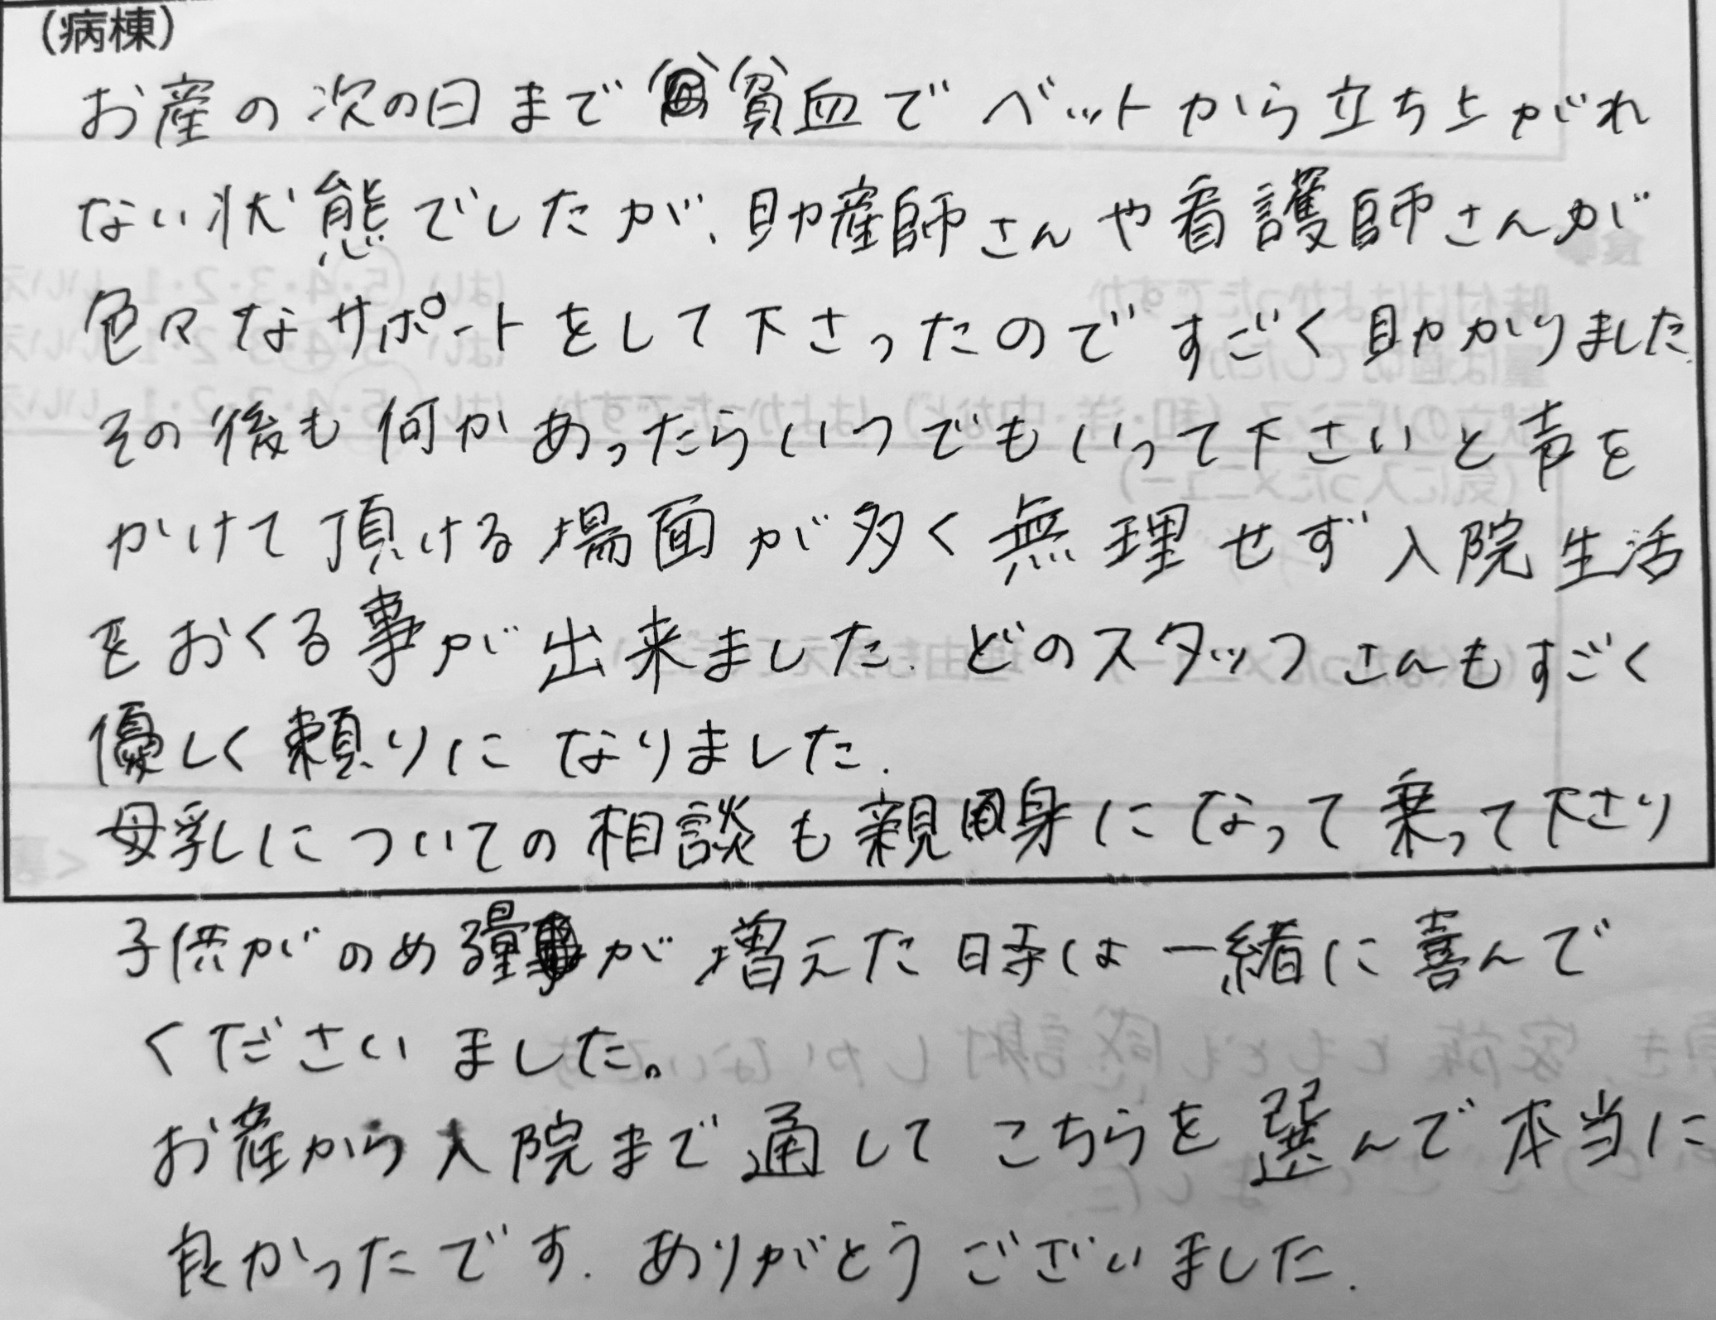 (病棟)
お産の次の日まで貧血でベットから立ち上がれ
ない状態でしたが、助産師さんや看護師さんが
色々なサポートをして下さったのですごく助かりました.
その後も何かあったらいつでもいって下さいと声を
かけて頂ける場面が多く無理せず入院生活
をおくる事が出来ました. どのスタッフさんもすごく
優しく頼りになりました.
母乳についての相談も親身になって乗って下さり
子供がのめる量が増えた時は一緒に喜んで
くださいました。
お産から入院まで通してこちらを選んで本当に
良かったです. ありがとうございました.